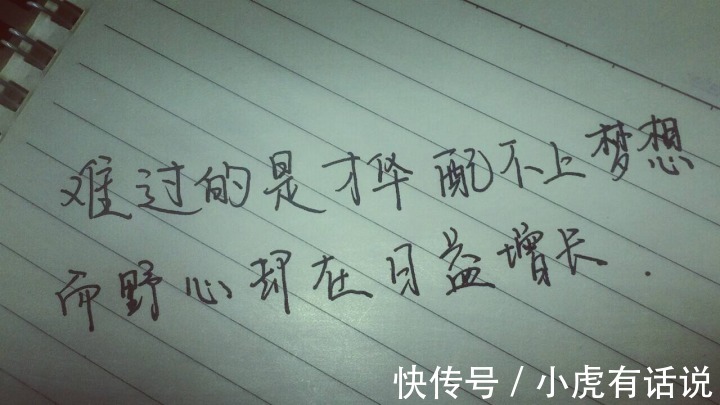 难过的是才华配不上梦想
而野心却在日益增长.
快传号 / 小虎有话说